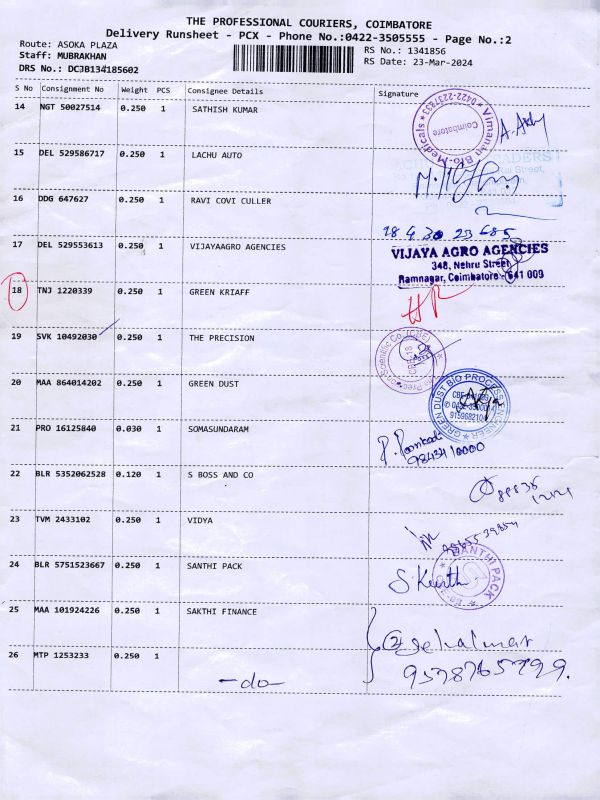 THE PROFESSIONAL COURIERS, COIMBATORE
Delivery Runsheet - PCX - Phone No.:0422-3505555 - Page No.:2
Route: ASOKA PLAZA
RS No.: 1341856
Staff: MUBRAKHAN
RS Date: 23-Mar-2024
DRS No.: DCJB134185602
S No Consignment No Weight PCS Consignee Details Signature
14 NGT 50027514 0.250 1 SATHISH KUMAR
Bio-Medicals * 0422-2237833
Coimbatore
15 DEL 529586717 0.250 1 LACHU AUTO
16 DDG 647627 0.250 1 RAVI COVI CULLER
17 DEL 529553613 0.250 1 VIJAYAAGRO AGENCIES
VIJAYA AGRO AGENCIES
348, Nehru Street
Ramnagar, Coimbatore - 641 009
18 TNJ 1220339 0.250 1 GREEN KRIAFF
19 SVK 10492030 0.250 1 THE PRECISION
Scientific Co. (CBE)
20 MAA 864014202 0.250 1 GREEN DUST
GREEN DUST BIO PROCESS ENGINEER
21 PRO 16125840 0.030 1 SOMASUNDARAM
22 BLR 5352062528 0.120 1 S BOSS AND CO
23 TVM 2433102 0.250 1 VIDYA
24 BLR 5751523667 0.250 1 SANTHI PACK
SANTHI PACK
25 MAA 101924226 0.250 1 SAKTHI FINANCE
26 MTP 1253233 0.250 1
-do-
9578765799.